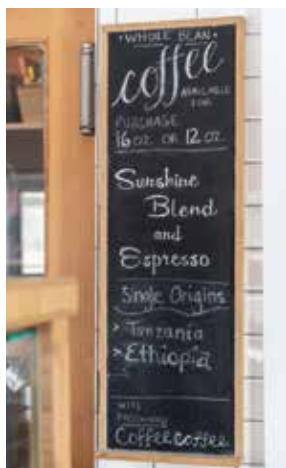 • WHOLE BEAN •
coffee
AVAILABLE
FOR
PURCHASE
16 OZ. OR 12 OZ.
Sunshine
Blend
and
Espresso
Single Origins
> Tanzania
> Ethiopia
Coffee coffee